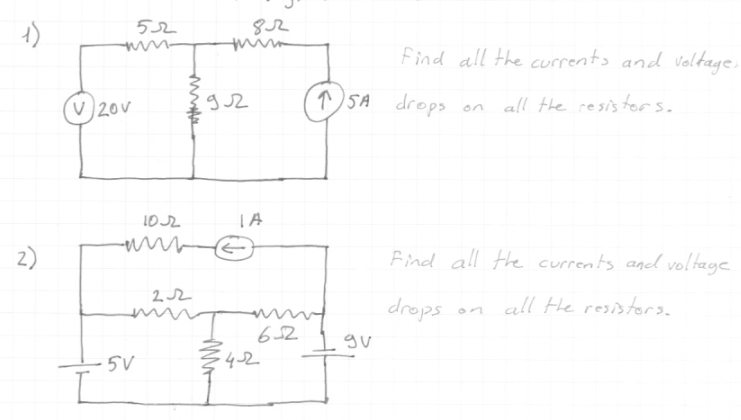 1)
5Ω
8Ω
V
20V
9Ω
5A
Find all the currents and voltage.
drops on all the resistors.
2)
10Ω
1A
2Ω
6Ω
9V
5V
4Ω
Find all the currents and voltage
drops on all the resistors.